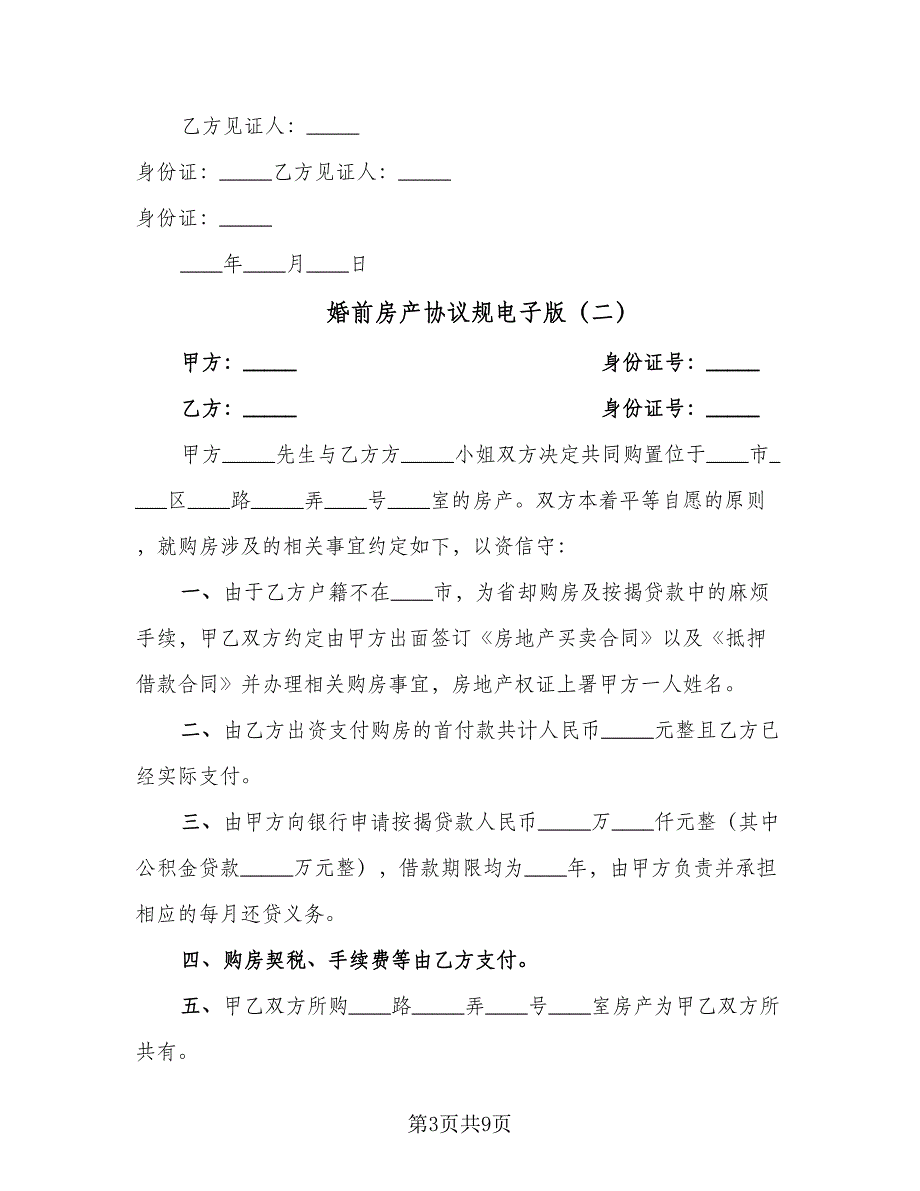 乙方见证人：_____
身份证：_____乙方见证人：_____
身份证：_____
____年____月____日
婚前房产协议规电子版（二）
甲方：_____ 身份证号：_____
乙方：_____ 身份证号：_____
甲方_____先生与乙方方_____小姐双方决定共同购置位于____市_
___区____路_____弄____号____室的房产。双方本着平等自愿的原则
，就购房涉及的相关事宜约定如下，以资信守：
一、由于乙方户籍不在____市，为省却购房及按揭贷款中的麻烦
手续，甲乙双方约定由甲方出面签订《房地产买卖合同》以及《抵押
借款合同》并办理相关购房事宜，房地产权证上署甲方一人姓名。
二、由乙方出资支付购房的首付款共计人民币_____元整且乙方已
经实际支付。
三、由甲方向银行申请按揭贷款人民币_____万____仟元整（其中
公积金贷款_____万元整），借款期限均为____年，由甲方负责并承担
相应的每月还贷义务。
四、购房契税、手续费等由乙方支付。
五、甲乙双方所购____路_____弄____号____室房产为甲乙双方所
共有。
第3页共9页